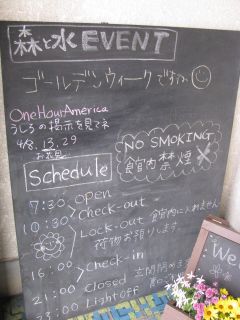 森と水 EVENT
ゴールデンウィークですが
One Hour America
うしろの掲示を見てネ
4/8. 13. 29
Schedule
NO SMOKING
館内禁煙
7:30 open
10:30 Check-out
Lock-out 館内に入れません
荷物お預りします。
16:00 Check-in
21:00 Closed 玄関閉めます
23:00 Light off
We